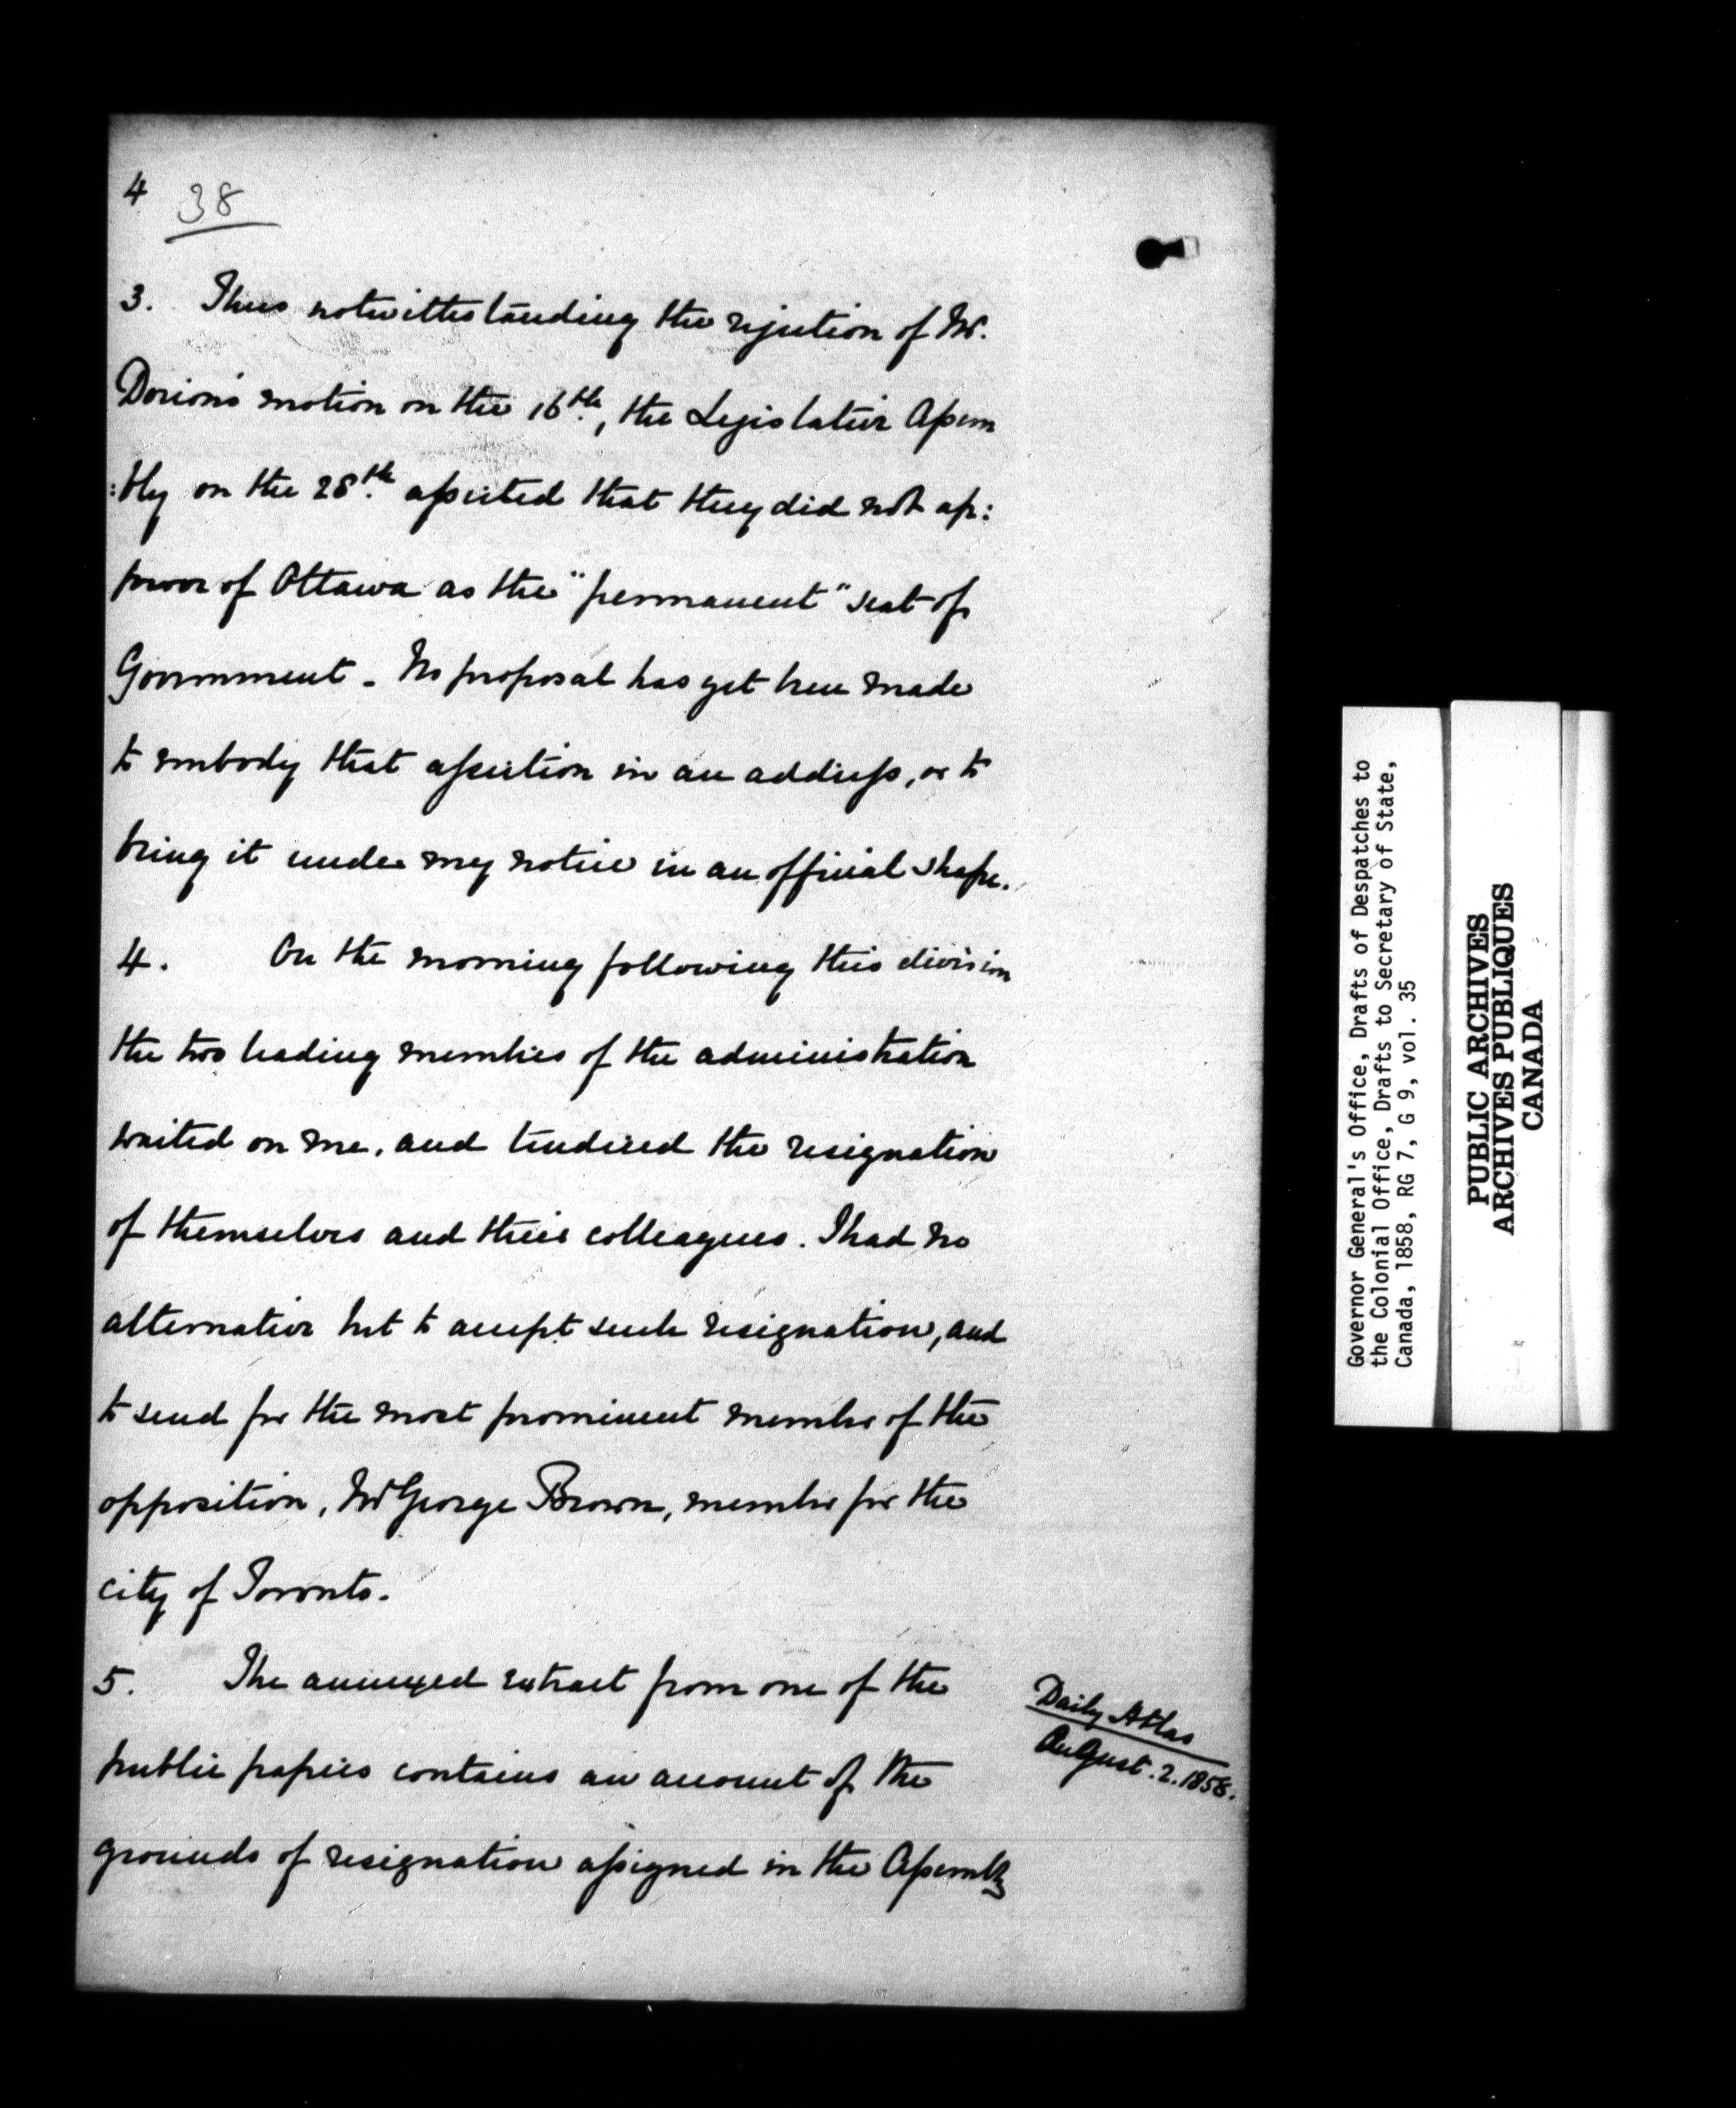 4 38
3. Thus notwithstanding the rejection of Mr.
Dorion's motion on the 16th, the Legislative Assem
:bly on the 28th. asserted that they did not ap:
prove of Ottawa as the "permanent" seat of
Government. No proposal has yet been made
to embody that assertion in an address, or to
bring it under my notice in an official shape.
4. On the morning following this division
the two leading members of the administration
waited on me, and tendered the resignation
of themselves and their colleagues. I had no
alternative but to accept such resignation, and
to send for the most prominent member of the
opposition, Mr George Brown, member for the
city of Toronto.
5. The annexed extract from one of the
public papers contains an account of the
grounds of resignation assigned in the Assembly
Daily Atlas
August. 2. 1858.
Governor General's Office, Drafts of Despatches to
the Colonial Office, Drafts to Secretary of State,
Canada, 1858, RG 7, G 9, vol. 35
PUBLIC ARCHIVES
ARCHIVES PUBLIQUES
CANADA